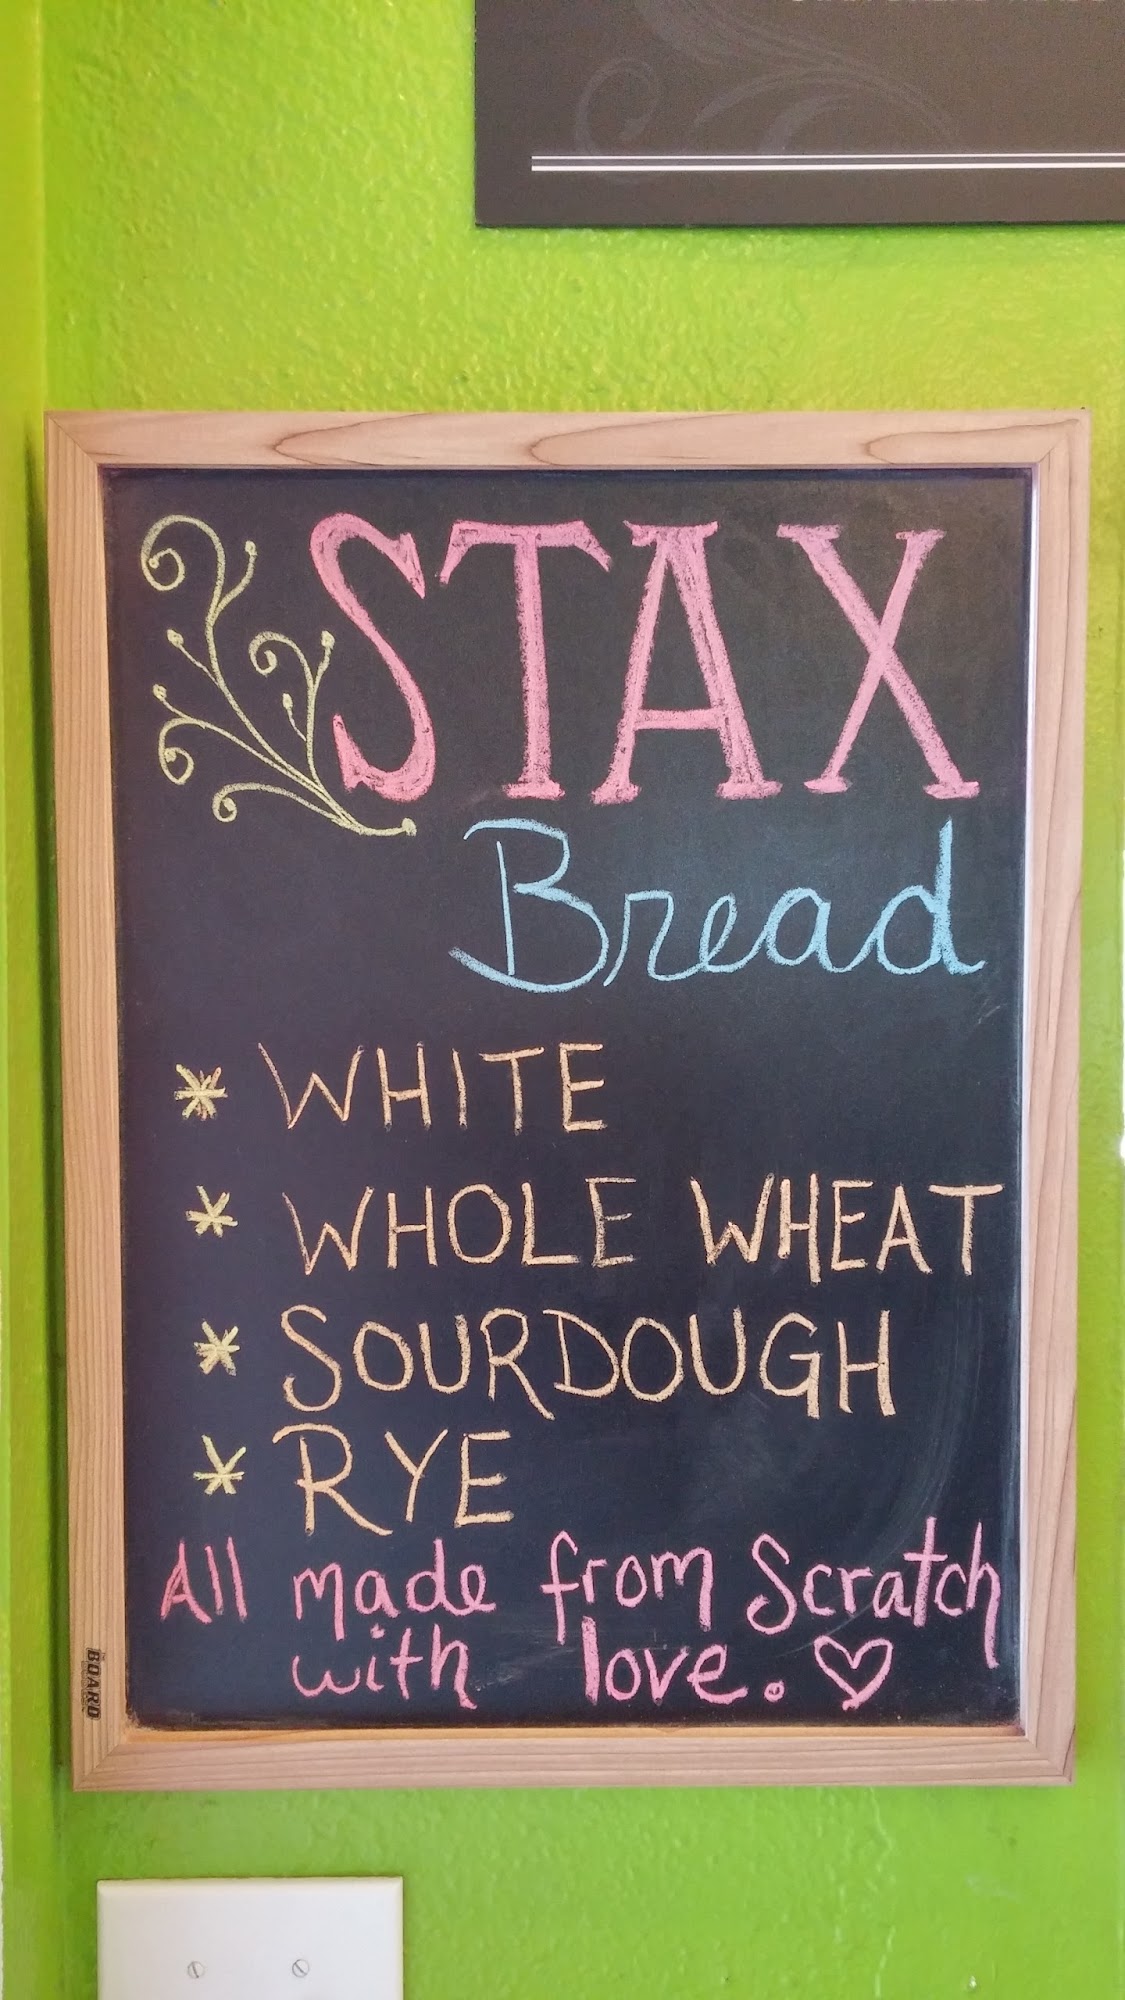 STAX
Bread
* WHITE
* WHOLE WHEAT
* SOURDOUGH
* RYE
All made from Scratch
with love. ♡
BOARD